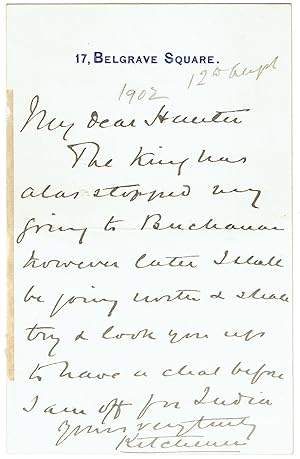 17, BELGRAVE SQUARE.
12th Augst
1902
My dear Hunter
The King has
alas stopped my
going to Buchanan
however later I shall
be going north & shall
try & look you up
to have a chat before
I am off for India
Yours very truly
Kitchener